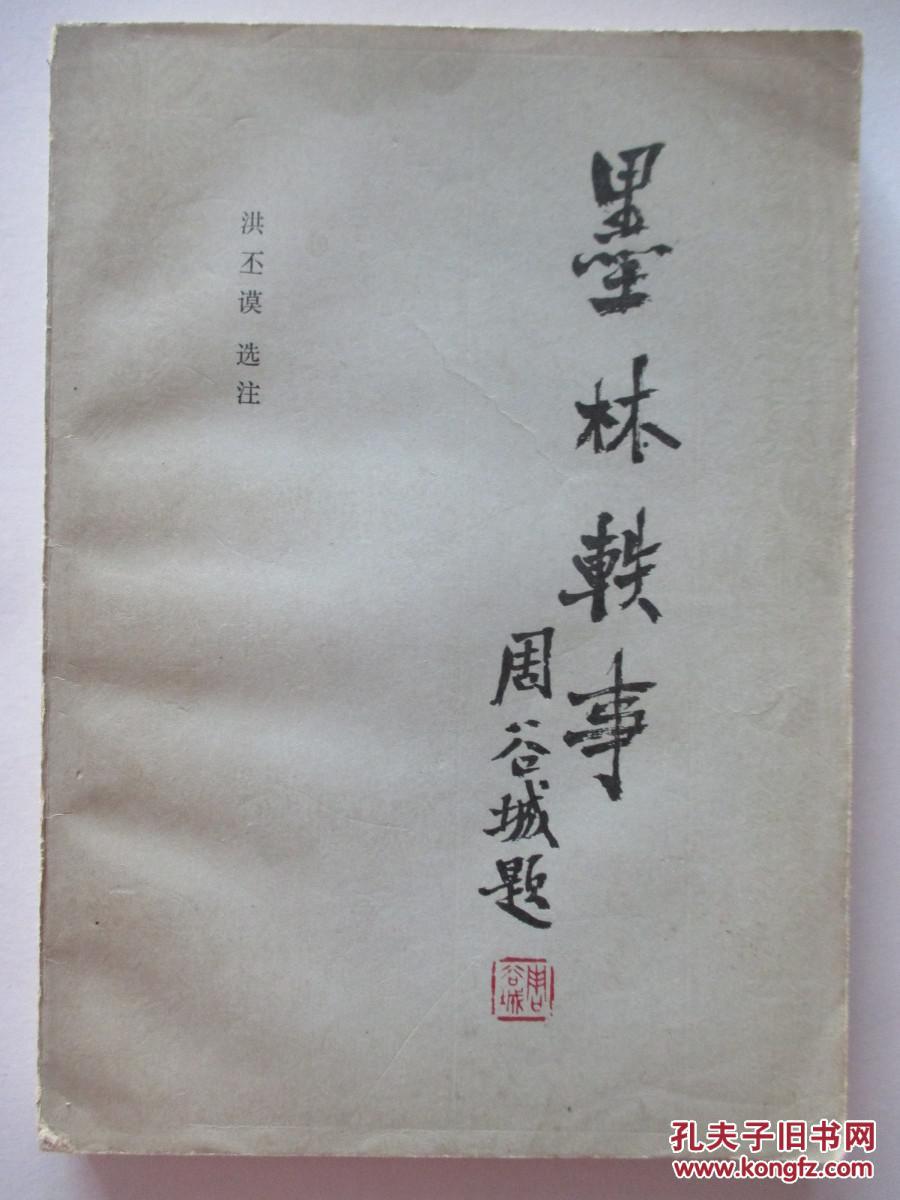 墨林軼事
周谷城题
周谷城
洪丕谟 选注
孔夫子旧书网
www.kongfz.com